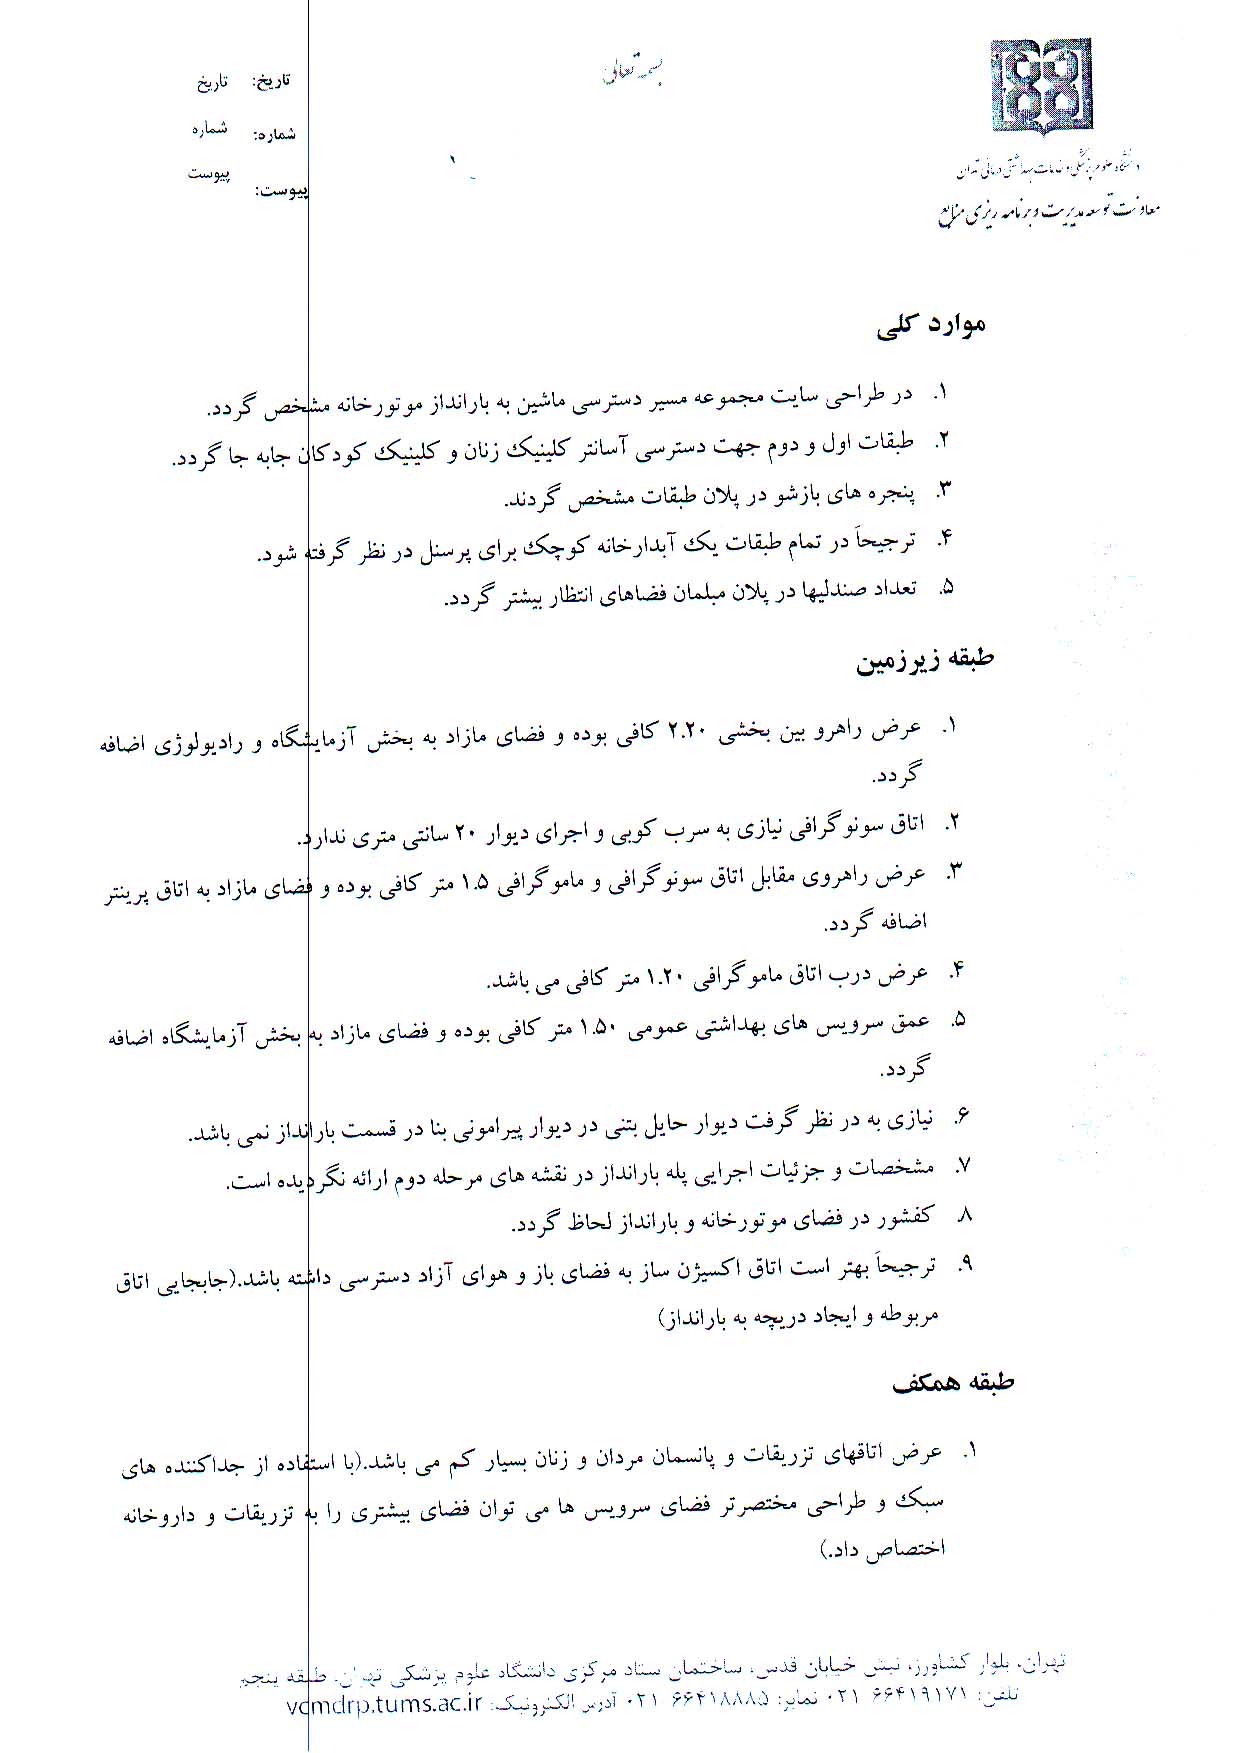 بسمه تعالی
تاریخ: تاریخ
شماره: شماره
پیوست: پیوست
دانشگاه علوم پزشکی و خدمات بهداشتی درمانی تهران
معاونت توسعه مدیریت و برنامه ریزی منابع
موارد کلی
۱. در طراحی سایت مجموعه مسیر دسترسی ماشین به بارانداز موتورخانه مشخص گردد.
۲. طبقات اول و دوم جهت دسترسی آسانتر کلینیک زنان و کلینیک کودکان جابه جا گردد.
۳. پنجره های بازشو در پلان طبقات مشخص گردند.
۴. ترجیحاً در تمام طبقات یک آبدارخانه کوچک برای پرسنل در نظر گرفته شود.
۵. تعداد صندلیها در پلان مبلمان فضاهای انتظار بیشتر گردد.
طبقه زیرزمین
۱. عرض راهرو بین بخشی ۲.۲۰ کافی بوده و فضای مازاد به بخش آزمایشگاه و رادیولوژی اضافه
گردد.
۲. اتاق سونوگرافی نیازی به سرب کوبی و اجرای دیوار ۲۰ سانتی متری ندارد.
۳. عرض راهروی مقابل اتاق سونوگرافی و ماموگرافی ۱.۵ متر کافی بوده و فضای مازاد به اتاق پرینتر
اضافه گردد.
۴. عرض درب اتاق ماموگرافی ۱.۲۰ متر کافی می باشد.
۵. عمق سرویس های بهداشتی عمومی ۱.۵۰ متر کافی بوده و فضای مازاد به بخش آزمایشگاه اضافه
گردد.
۶. نیازی به در نظر گرفت دیوار حایل بتنی در دیوار پیرامونی بنا در قسمت بارانداز نمی باشد.
۷. مشخصات و جزئیات اجرایی پله بارانداز در نقشه های مرحله دوم ارائه نگردیده است.
۸. کفشور در فضای موتورخانه و بارانداز لحاظ گردد.
۹. ترجیحاً بهتر است اتاق اکسیژن ساز به فضای باز و هوای آزاد دسترسی داشته باشد.(جابجایی اتاق
مربوطه و ایجاد دریچه به بارانداز)
طبقه همکف
۱. عرض اتاقهای تزریقات و پانسمان مردان و زنان بسیار کم می باشد.(با استفاده از جداکننده های
سبک و طراحی مختصرتر فضای سرویس ها می توان فضای بیشتری را به تزریقات و داروخانه
اختصاص داد.)
تهران، بلوار کشاورز، نبش خیابان قدس، ساختمان ستاد مرکزی دانشگاه علوم پزشکی تهران، طبقه پنجم
تلفن: ۶۶۴۱۹۱۷۱ ۰۲۱ نمابر: ۶۶۴۱۸۸۸۵ ۰۲۱ آدرس الکترونیک: vcmdrp.tums.ac.ir